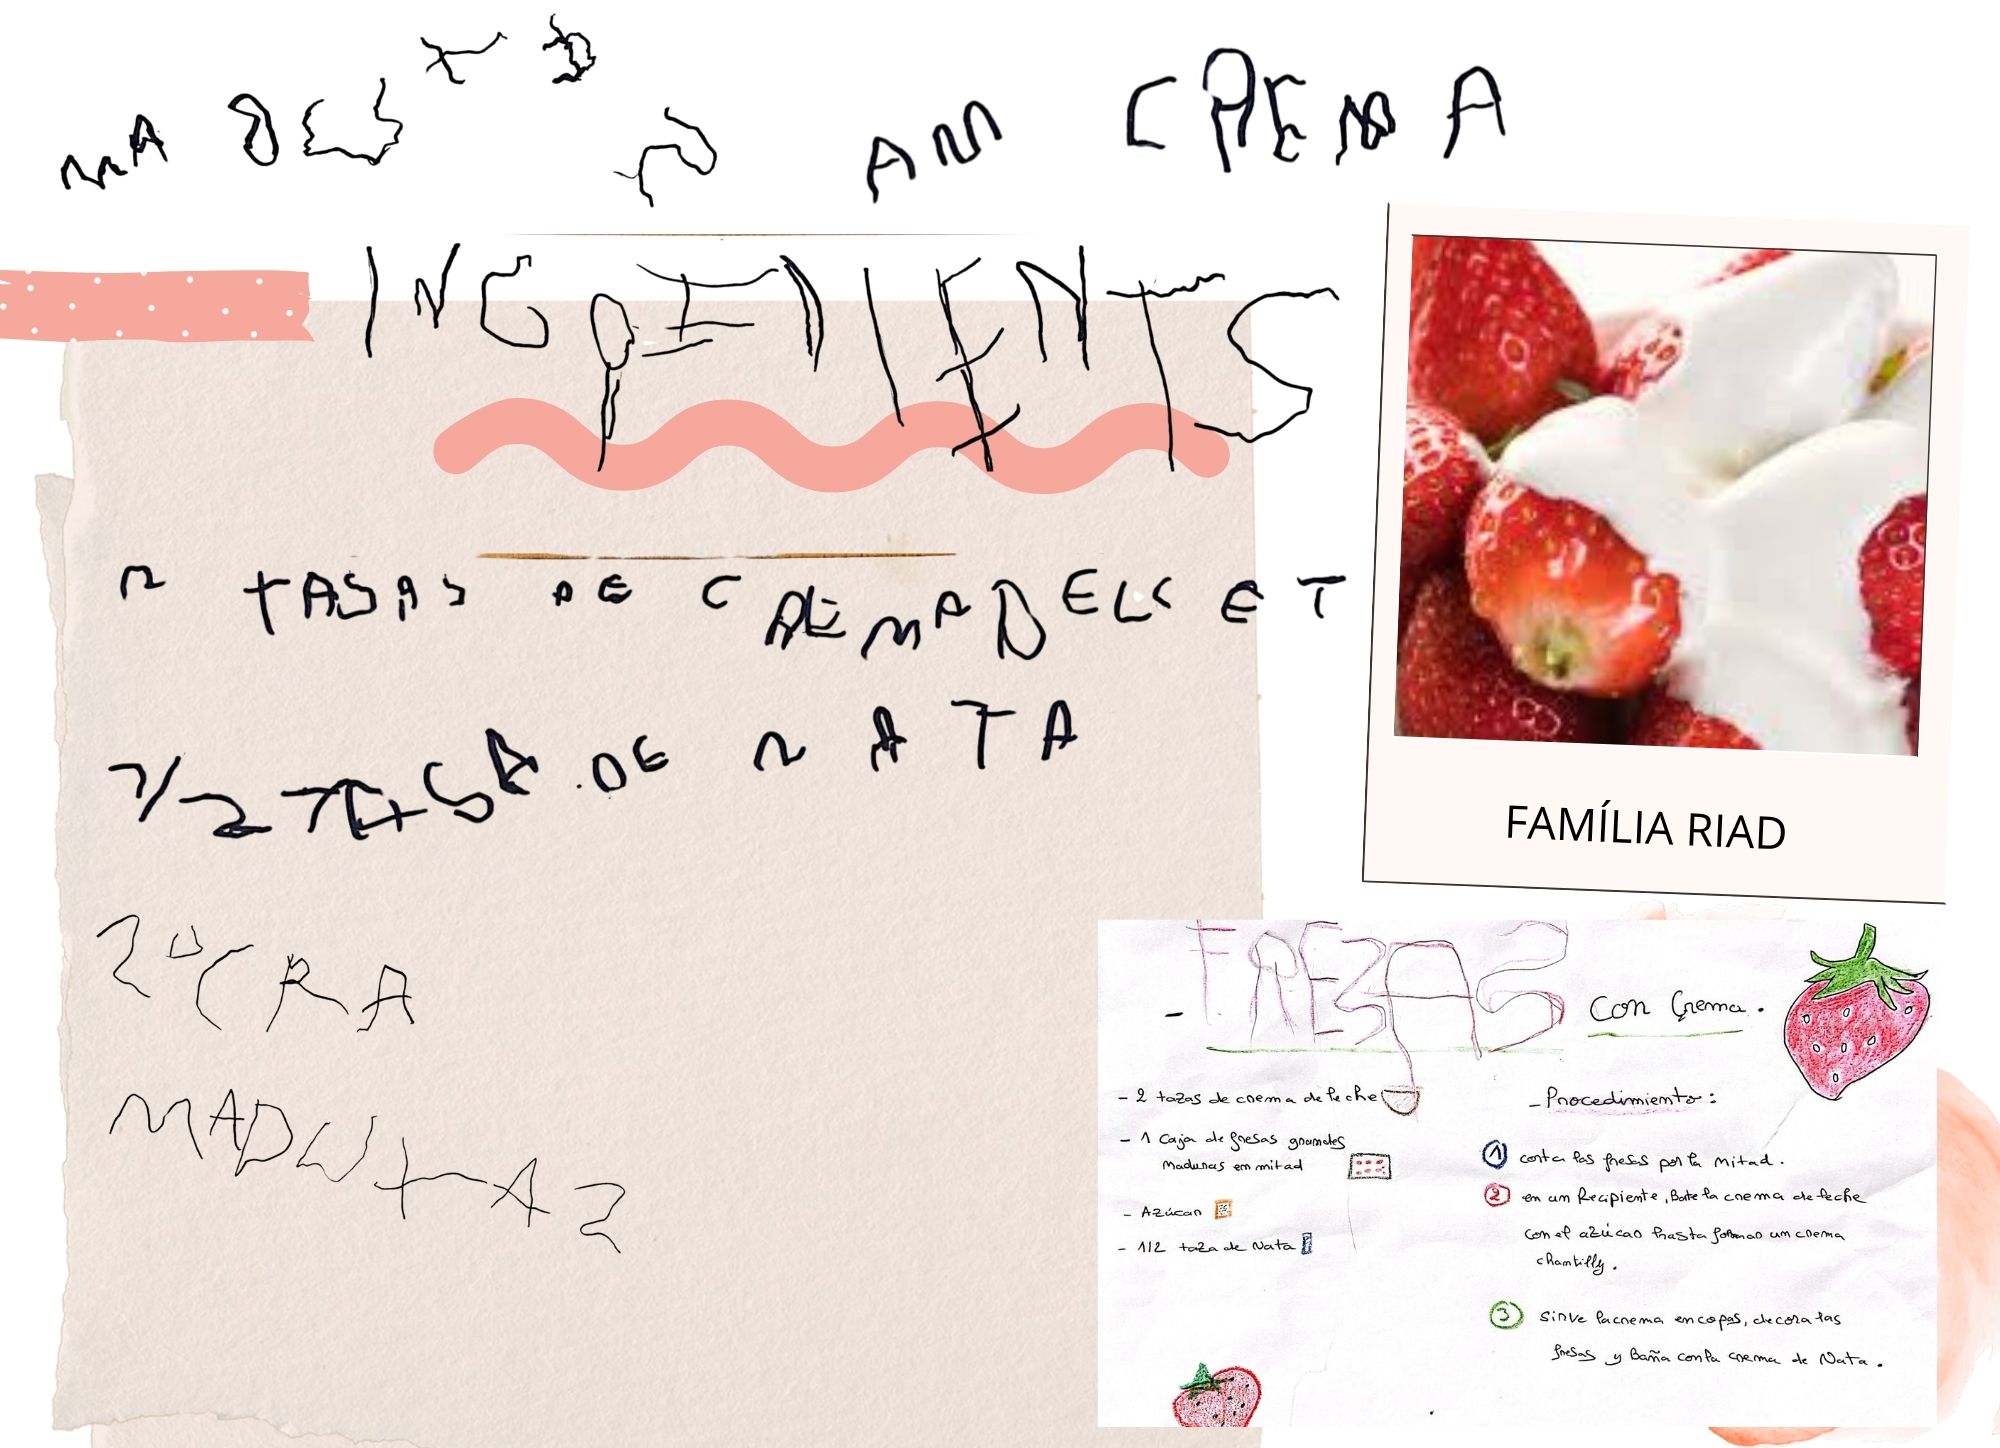 AM CREMA
INGREDIENTS
TASAS DE CREMA DE LCET
1/2 TASA DE NATA
MADU
FAMÍLIA RIAD
- FRESAS con Crema.
- 2 tazas de crema de leche
- 1 Caja de fresas grandes
maduras en mitad
- Azúcar
- 1/2 taza de Nata
- Procedimiento:
1 corta las fresas por la mitad.
2 en un Recipiente, Bate la crema de leche
con el azúcar hasta formar un crema
chantilly.
3 sirve la crema en copas, decora las
fresas y Baña con la crema de Nata.